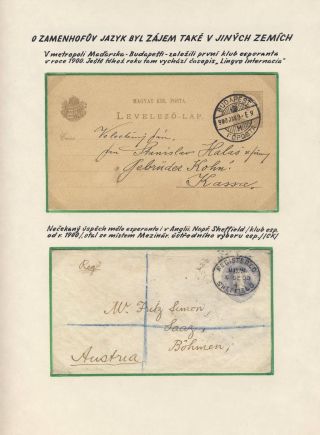 O ZAMENHOFŮV JAZYK BYL ZÁJEM TAKÉ V JINÝCH ZEMÍCH
V metropoli Maďarska - Budapešti - založili první klub esperanta
v roce 1900. Ještě téhož roku tam vychází časopis „Lingvo Internacia"
MAGYAR KIR. POSTA.
LEVELEZŐ-LAP.
BUDAPEST
Stanislav
Gebrüder Kohn
Kassa
Nečekaný úspěch mělo esperanto i v Anglii. Např. Sheffield /klub esp.
od r. 1900/, stal se místem Mezinár. ústředního výboru esp. /ICK/
Reg'd
REGISTERED
SHEFFIELD
Mr. Fritz Simon,
Saaz,
Böhmen,
Austria